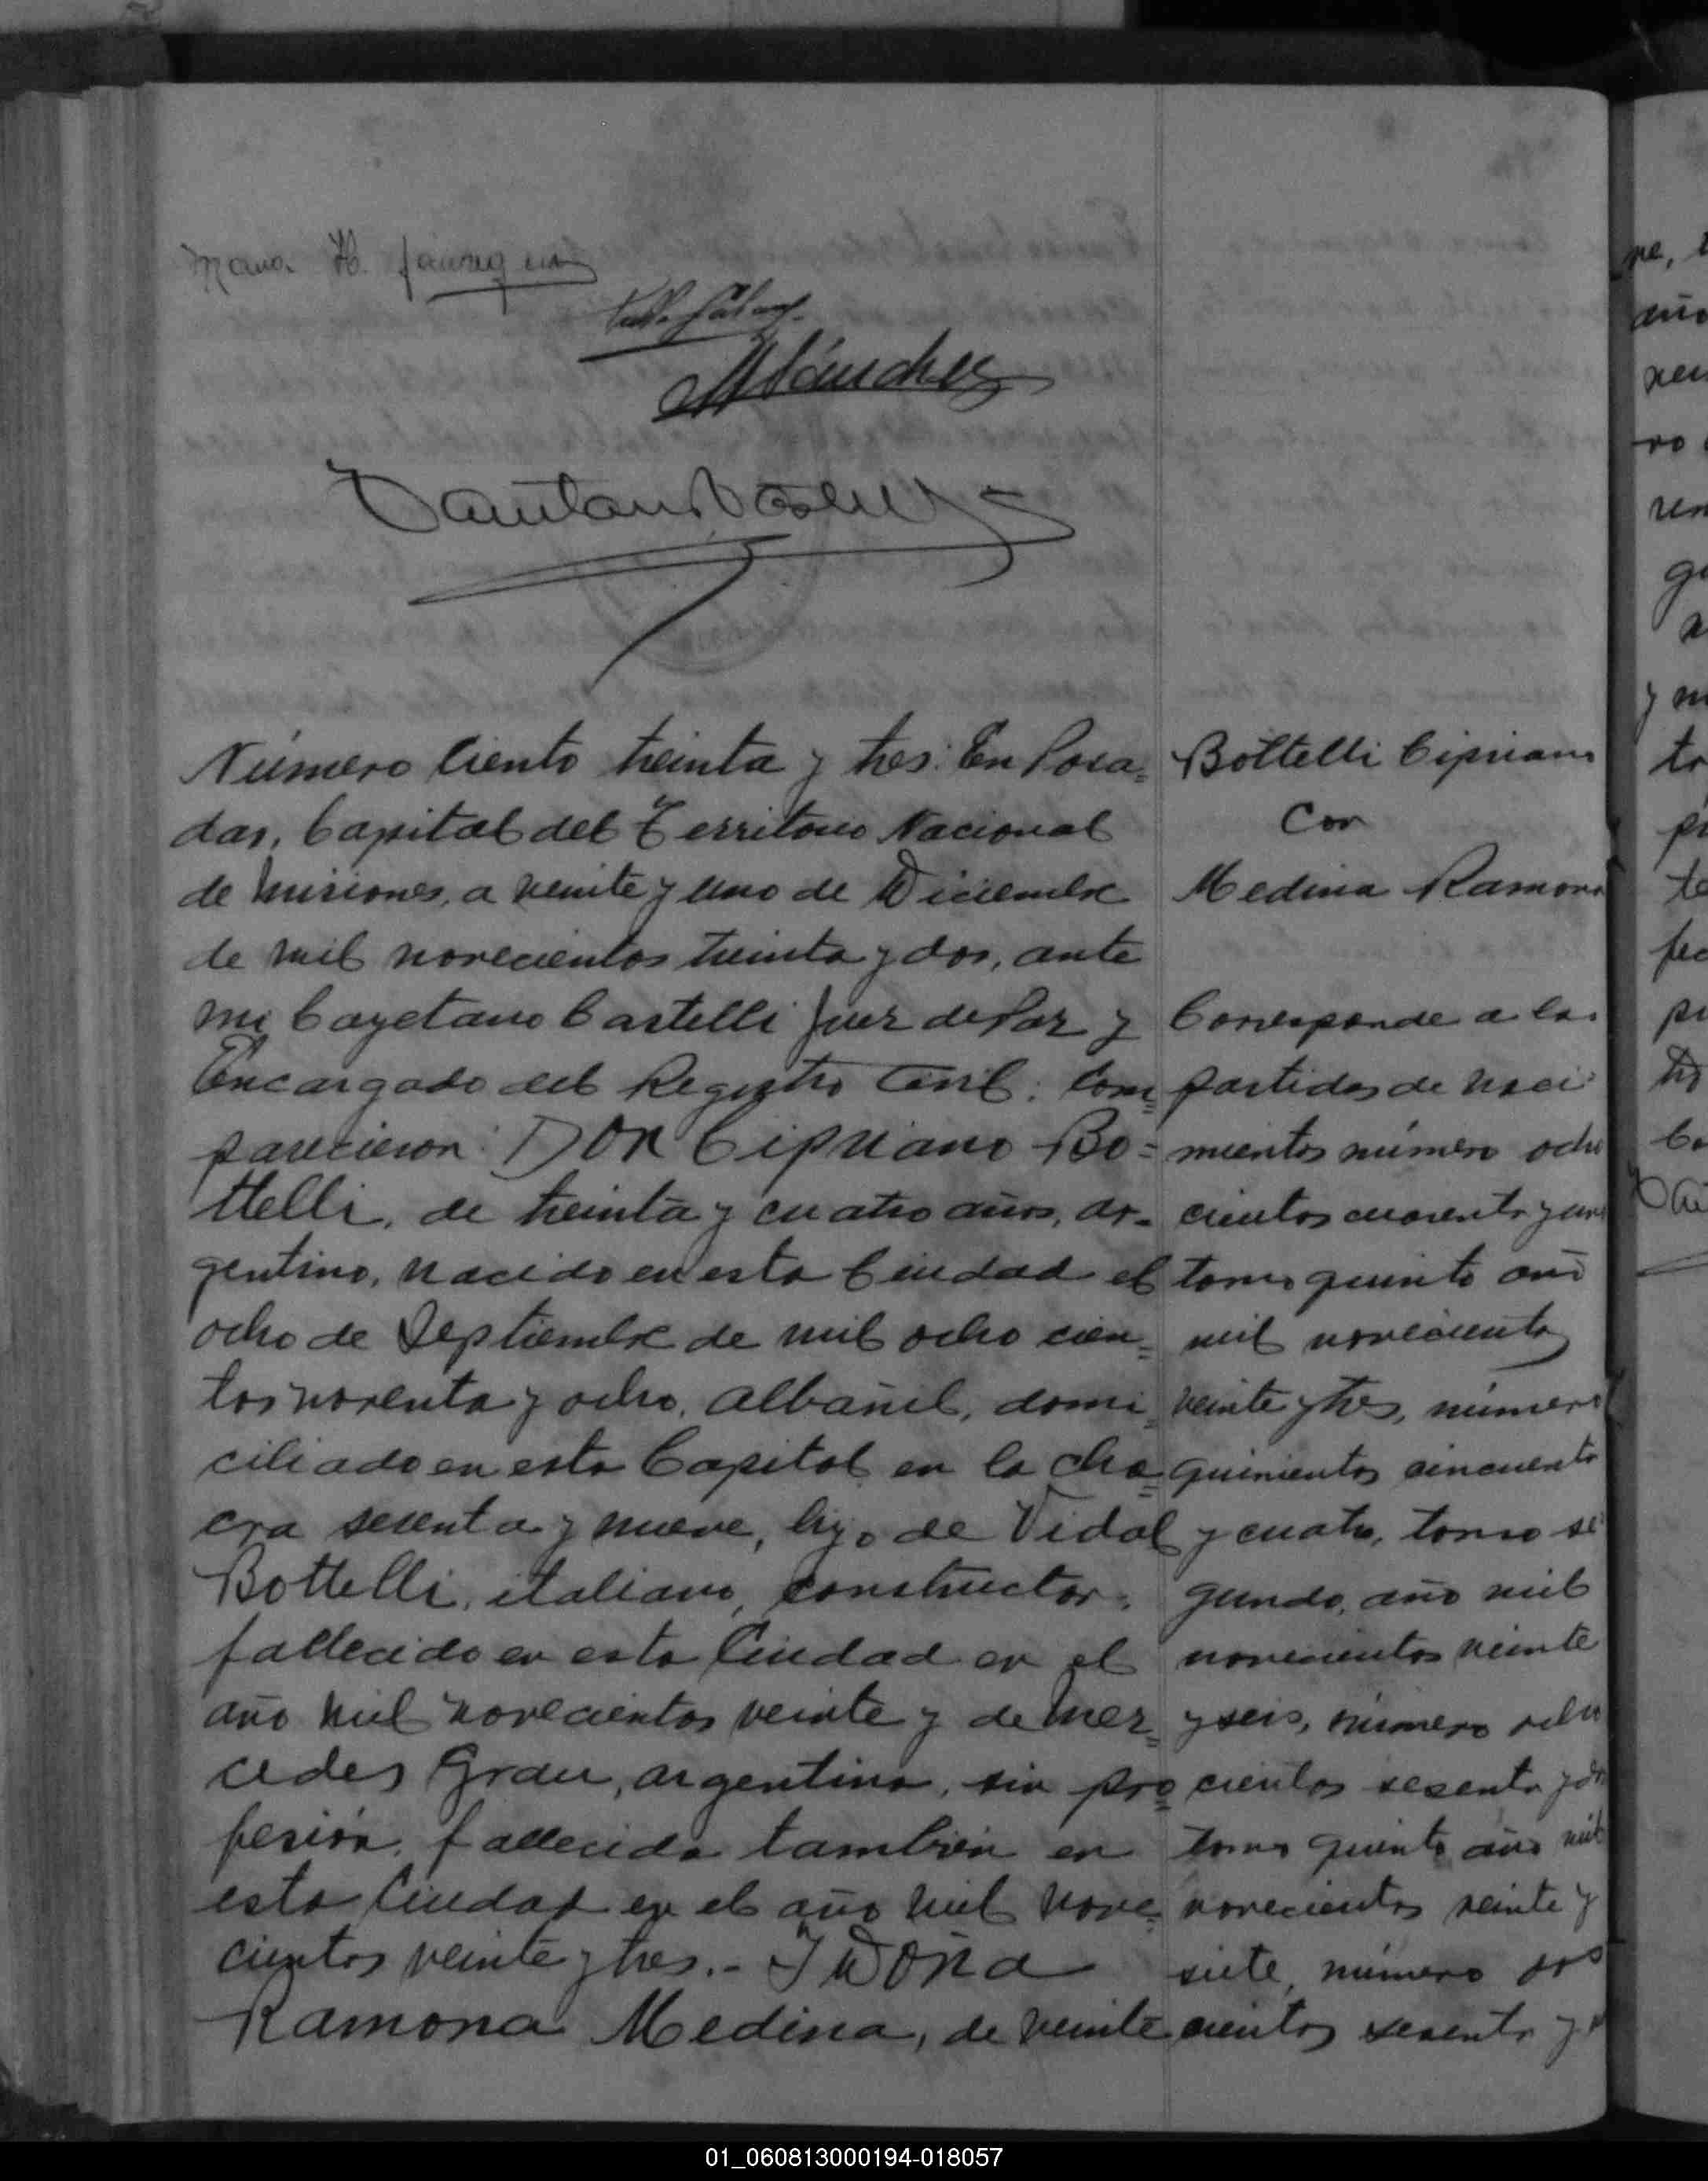 H. Jauregui
MSánchez
Número Ciento treinta y tres: En Posa=
das, Capital del Territorio Nacional
de Misiones, a veinte y uno de Diciembre
de mil novecientos treinta y dos, ante
mi Cayetano Castelli Juez de Paz y
Encargado del Registro Civil: Com=
parecieron: DON Cipriano Bo=
ttelli, de treinta y cuatro años, ar=
gentino, nacido en esta Ciudad el
ocho de Septiembre de mil ocho cien=
tos noventa y ocho, albañil, domi=
ciliado en esta Capital en la cha=
cra sesenta y nueve, hijo de Vidal
Bottelli, italiano, constructor,
fallecido en esta Ciudad en el
año mil novecientos veinte y de Mer=
cedes Grau, argentina, sin pro=
fesión, fallecida también en
esta Ciudad en el año mil nove=
cientos veinte y tres.- Y DOÑA
Ramona Medina, de veinte
Bottelli Cipriano
Con
Medina Ramona
Corresponde a las
partidas de naci
mientos número ocho
cientos cuarenta y un
tomo quinto año
mil novecientos
veinte y tres, número
quinientos cincuenta
y cuatro, tomo se
gundo, año mil
novecientos veinte
y seis, número ocho
cientos sesenta y dos
tomo quinto año mil
novecientos veinte y
siete, número dos
cientos sesenta y